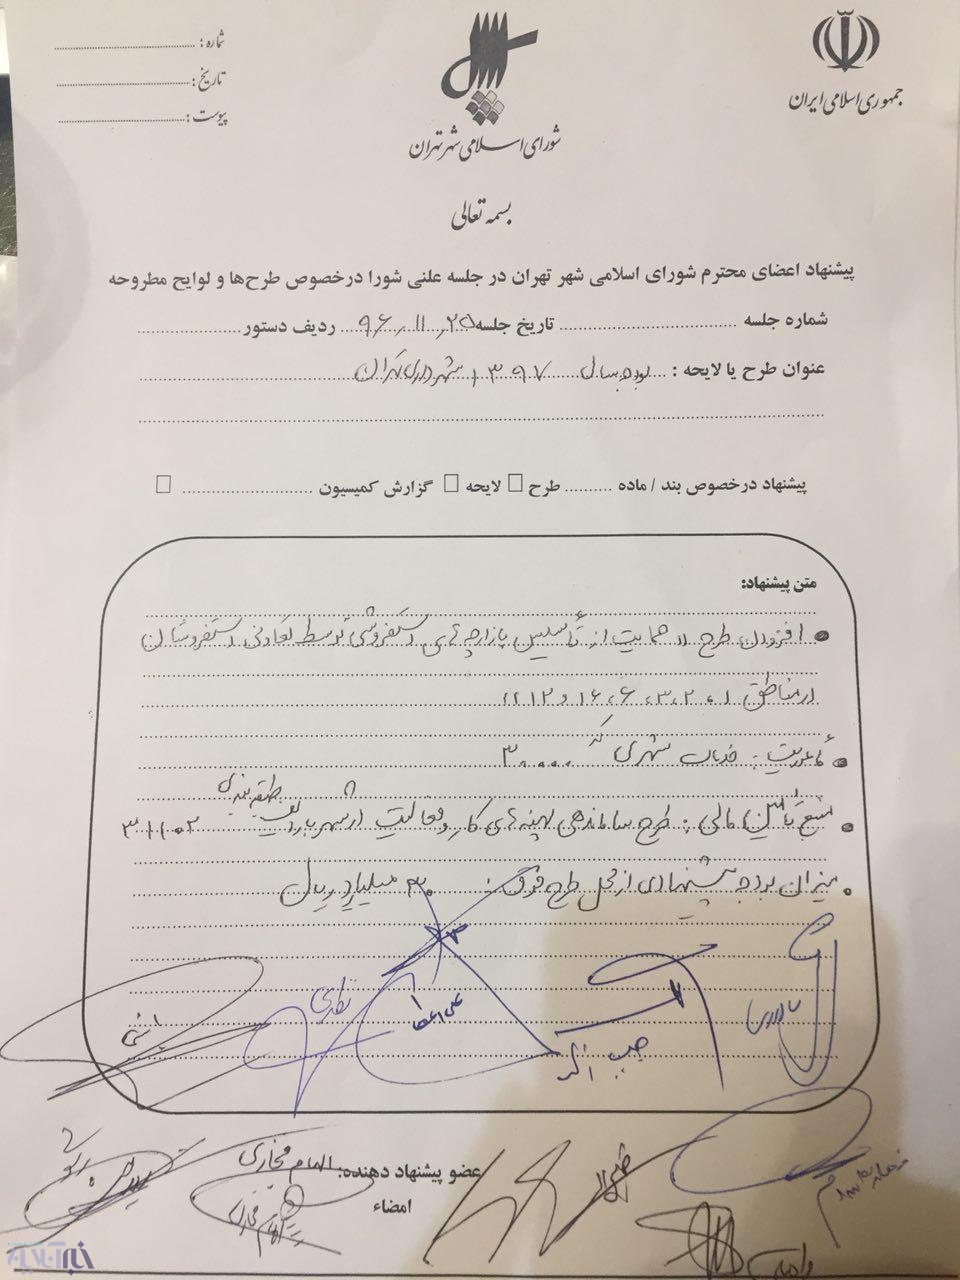 جمهوری اسلامی ایران
شورای اسلامی شهر تهران
شماره : ..............................
تاریخ : ..............................
پیوست : ..............................
بسمه تعالی
پیشنهاد اعضای محترم شورای اسلامی شهر تهران در جلسه علنی شورا درخصوص طرح‌ها و لوایح مطروحه
شماره جلسه .............................. تاریخ جلسه ۹۶/۱۱/۲۵ ردیف دستور ..............................
عنوان طرح یا لایحه : بودجه سال ۱۳۹۷ شهرداری تهران
پیشنهاد درخصوص بند / ماده .......... طرح □ لایحه □ گزارش کمیسیون .............................. □
متن پیشنهاد:
افزودن طرح " حمایت از تأسیس بازارچه‌های دستفروشی توسط تعاونی دستفروشان
در مناطق ۱، ۲، ۳، ۶، ۱۶ و ۱۲ "
مأموریت: خدمات شهری کد ۳۰۰۰۰۰
منبع تأمین مالی: طرح ساماندهی کار و فعالیت در شهر با ردیف طبقه بندی
میزان بودجه پیشنهادی از محل طرح فوق: ۳۰ میلیارد ریال
نظری
علی اعطا
عضو پیشنهاد دهنده: الهام فخاری
امضاء
الهام فخاری
خبرآنلاین